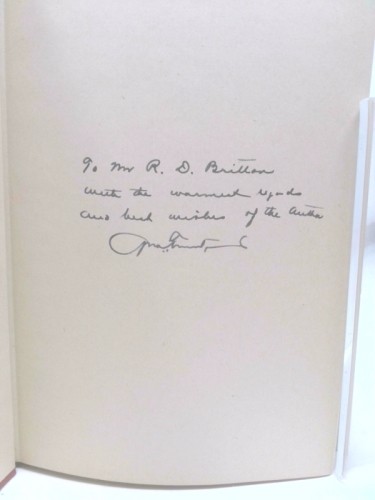 To Mr R. D. Britton
with the warmest regards
and best wishes of the Author